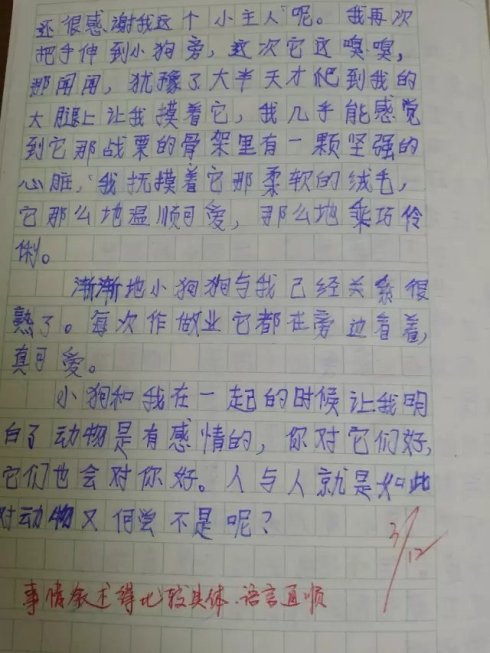 还很感谢我这个小主人"呢。我再次
把手伸到小狗旁,这次它这嗅嗅,
那闻闻,犹豫了大半天才爬到我的
大腿上让我摸着它,我几乎能感觉
到它那战栗的骨架里有一颗坚强的
心脏,我抚摸着它那柔软的绒毛,
它那么地温顺可爱,那么地乘巧伶
俐。
渐渐地小狗狗与我已经关系很
熟了。每次作做业它都在旁边看着,
真可爱。
小狗和我在一起的时候让我明
白了动物是有感情的,你对它们好,
它们也会对你好。人与人就是如此
对动物又何尝不是呢?
3/12
事情叙述得比较具体.语言通顺